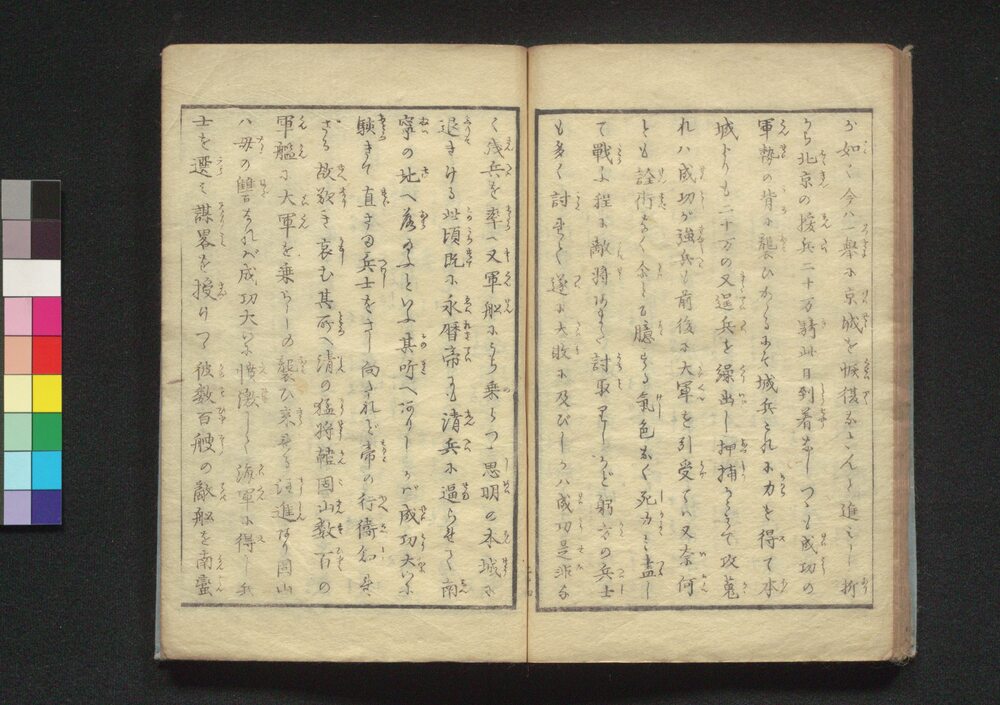 が如く今ハ一擧に京城を恢復なさんと進ミし折
から北京の援兵二十万騎此日到着なしつゝも成功の
軍勢の背に襲ひかゝるにぞ城兵これに力を得て本
城よりも二十万の又逞兵を繰出し押捕かこミて攻蒐
れハ成功が強兵も前後に大軍を引受てハ又奈何
とも詮術なく
臆する氣色なく死力を盡し
て戰ふ程に敵將あまた討取しかど躬方の兵士
も多く討れて遂に大敗に及びしかハ成功是非な
く残兵を率へ又軍船にうち乗りつゝ思明の本城に
退きける此頃既に永暦帝にも清兵に逼られて南
寧の地へ落
といふ其所へ
しかバ成功大いに
駭きて直さま兵士をさし向
帝の行衞知れ
ざる故歎き哀む其所へ清の猛將
國山数百の
軍艦に大軍を乗らしめ襲ひ来
注進あり國山
ハ母の讐なれバ成功大いに
海軍に得
士を選ミ謀畧を授けつゝ彼数百艘の敵船を南蛮